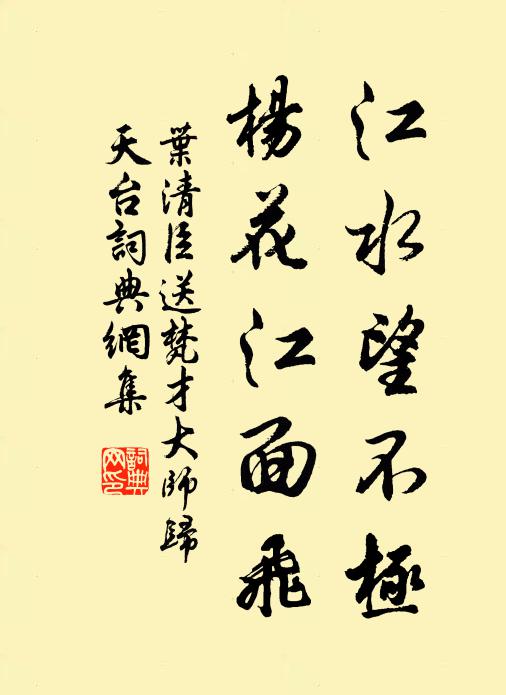 江水望不極
楊花江面飛
葉清臣送梵才大師歸
天台詞典網集
詞典
网印